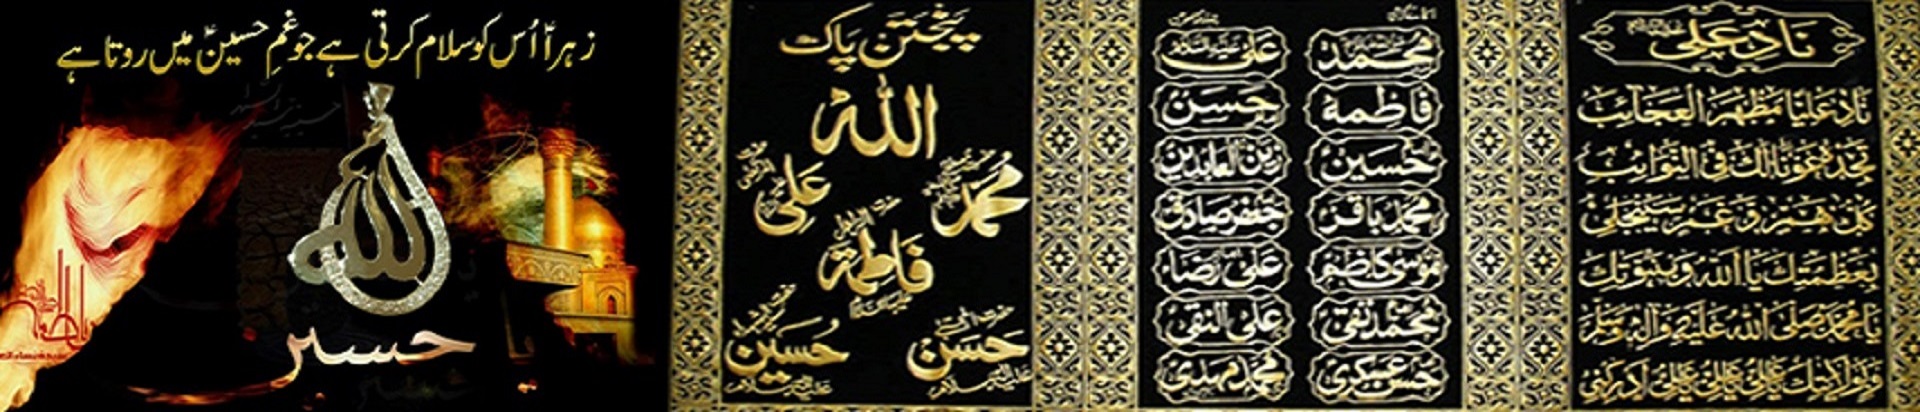 زہراؑ اُس کو سلام کرتی ہے جو غمِ حسینؑ میں روتا ہے
الله
يا حسین
پنجتن پاک
الله
محمد
علی
فاطمة
حسن
حسین
محمد
علی
فاطمه
حسن
حسین
زین العابدین
محمد باقر
جعفر صادق
موسی کاظم
علی رضاء
محمد تقی
علی النقی
حسن عسکری
محمد مهدی
ناد علی
ناد علیا مظهر العجائب
تجده عونا لك فی النوائب
كل هم و غم سینجلی
بعظمتك یا الله و بنبوتك
یا محمد صلی الله علیه و اله وسلم
و بولایتك یا علی یا علی یا علی ادركنی